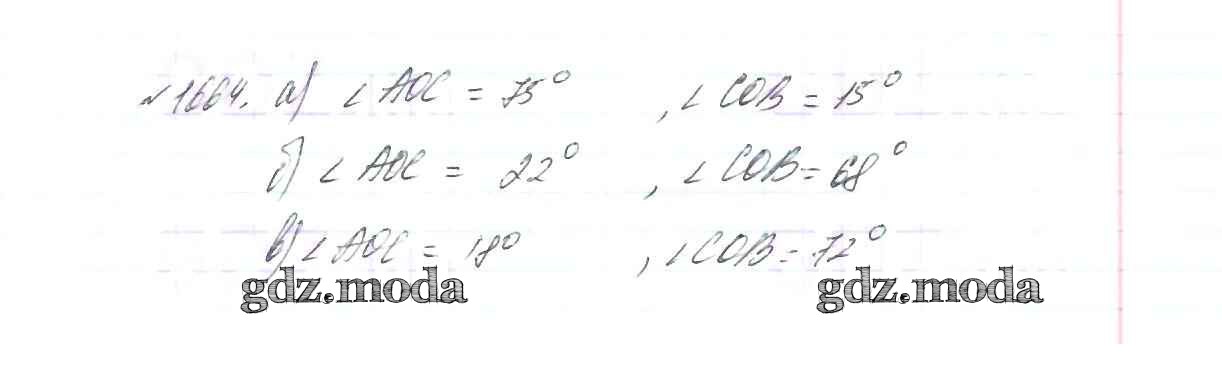 №1664. а) ∠AOC = 75°, ∠COB = 15°
б) ∠AOC = 22°, ∠COB = 68°
в) ∠AOC = 18°, ∠COB = 72°
gdz.moda gdz.moda